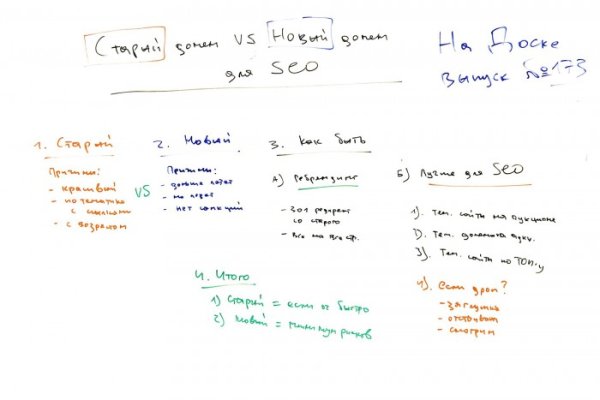 Старый домен VS Новый домен
для SEO
На Доске
выпуск №173
1. Старый
Причины:
- красивый
- по тематике
с ссылками
- с возрастом
VS
2. Новый
Причины:
- дольше
- не
- нет санкций
3. Как быть
А) Ребрендинг
- 301 редирект
со старого
- Все на
Б) Лучше для SEO
1). Тем. сайты на аукционе
2). Тем. домены
3). Тем. сайты по ТОП-у
4). если дроп?
- заглушка
- отстаивать
- смотрим
4. Итого
1) Старый = если оч быстро
2) Новый = минимум рисков